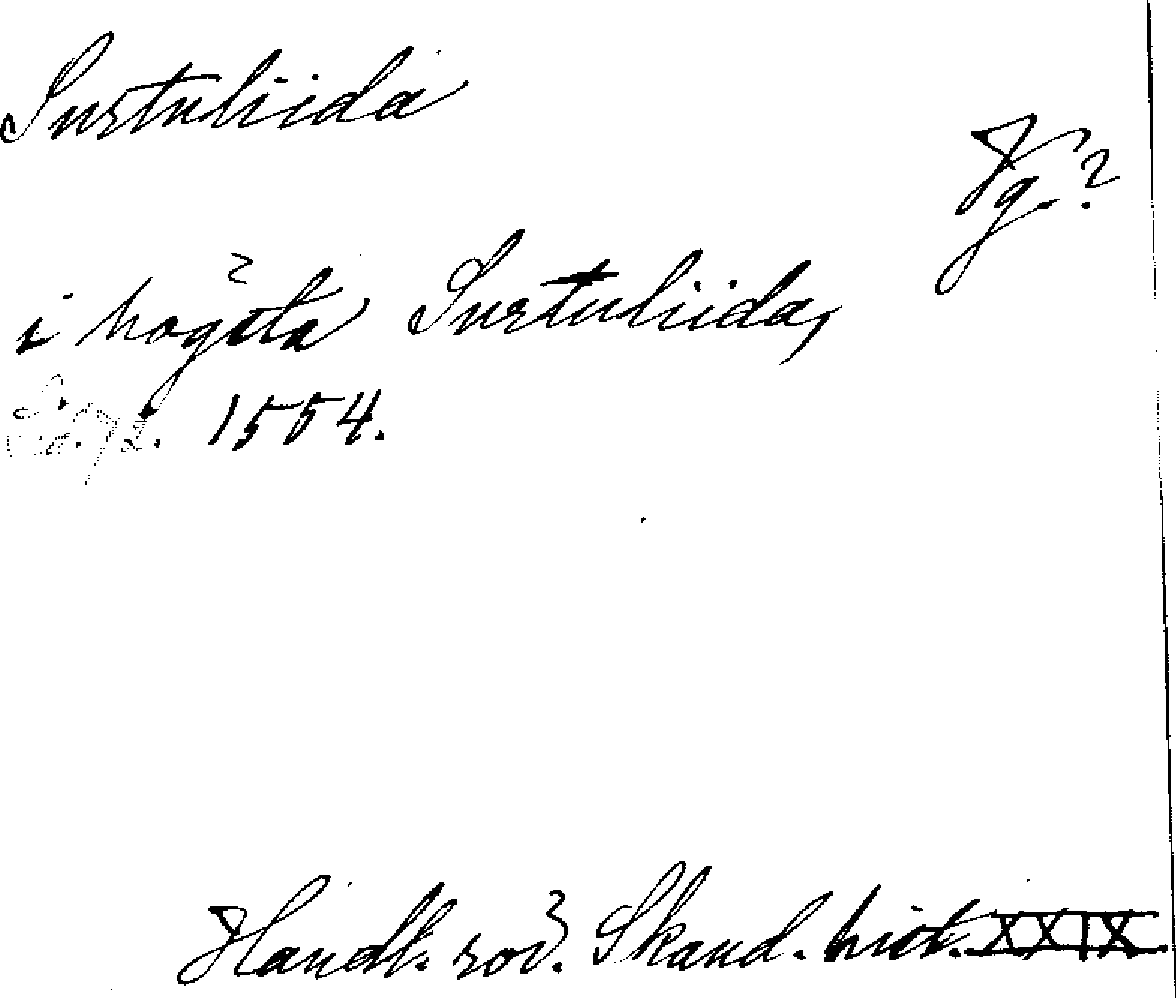 Surtuliida
Vg.?
i högsta Surtuliida,
Sid. 72. 1554.
Handl. rör. Skand. hist. XXIX.